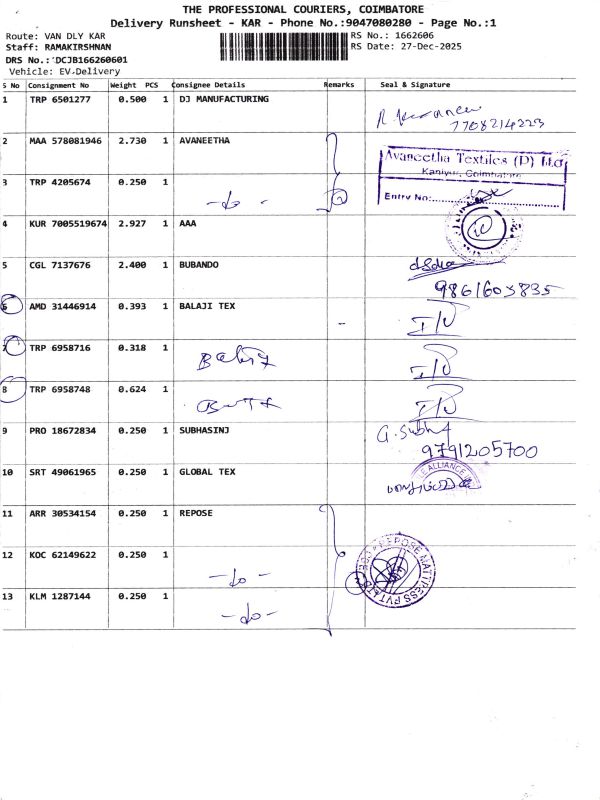 THE PROFESSIONAL COURIERS, COIMBATORE
Delivery Runsheet - KAR - Phone No.:9047080280 - Page No.:1
Route: VAN DLY KAR RS No.: 1662606
Staff: RAMAKIRSHNAN RS Date: 27-Dec-2025
DRS No.: DCJB166260601
Vehicle: EV.Delivery
S No Consignment No Weight PCS Consignee Details Remarks Seal & Signature
1 TRP 6501277 0.500 1 DJ MANUFACTURING
7708214223
2 MAA 578081946 2.730 1 AVANEETHA
Avaneetha Textiles (P) Ltd
Kaniyur, Coimbatore
3 TRP 4205674 0.250 1 -do- Entry No:
4 KUR 7005519674 2.927 1 AAA
5 CGL 7137676 2.400 1 BUBANDO
9861603835
6 AMD 31446914 0.393 1 BALAJI TEX - I/U
7 TRP 6958716 0.318 1 Balaji I/U
8 TRP 6958748 0.624 1 I/U
9 PRO 18672834 0.250 1 SUBHASINJ G. Subha
9791205700
10 SRT 49061965 0.250 1 GLOBAL TEX ALLIANCE
11 ARR 30534154 0.250 1 REPOSE
REPOSE MATTRESS PVT LTD
12 KOC 62149622 0.250 1 -do- 3
13 KLM 1287144 0.250 1 -do-